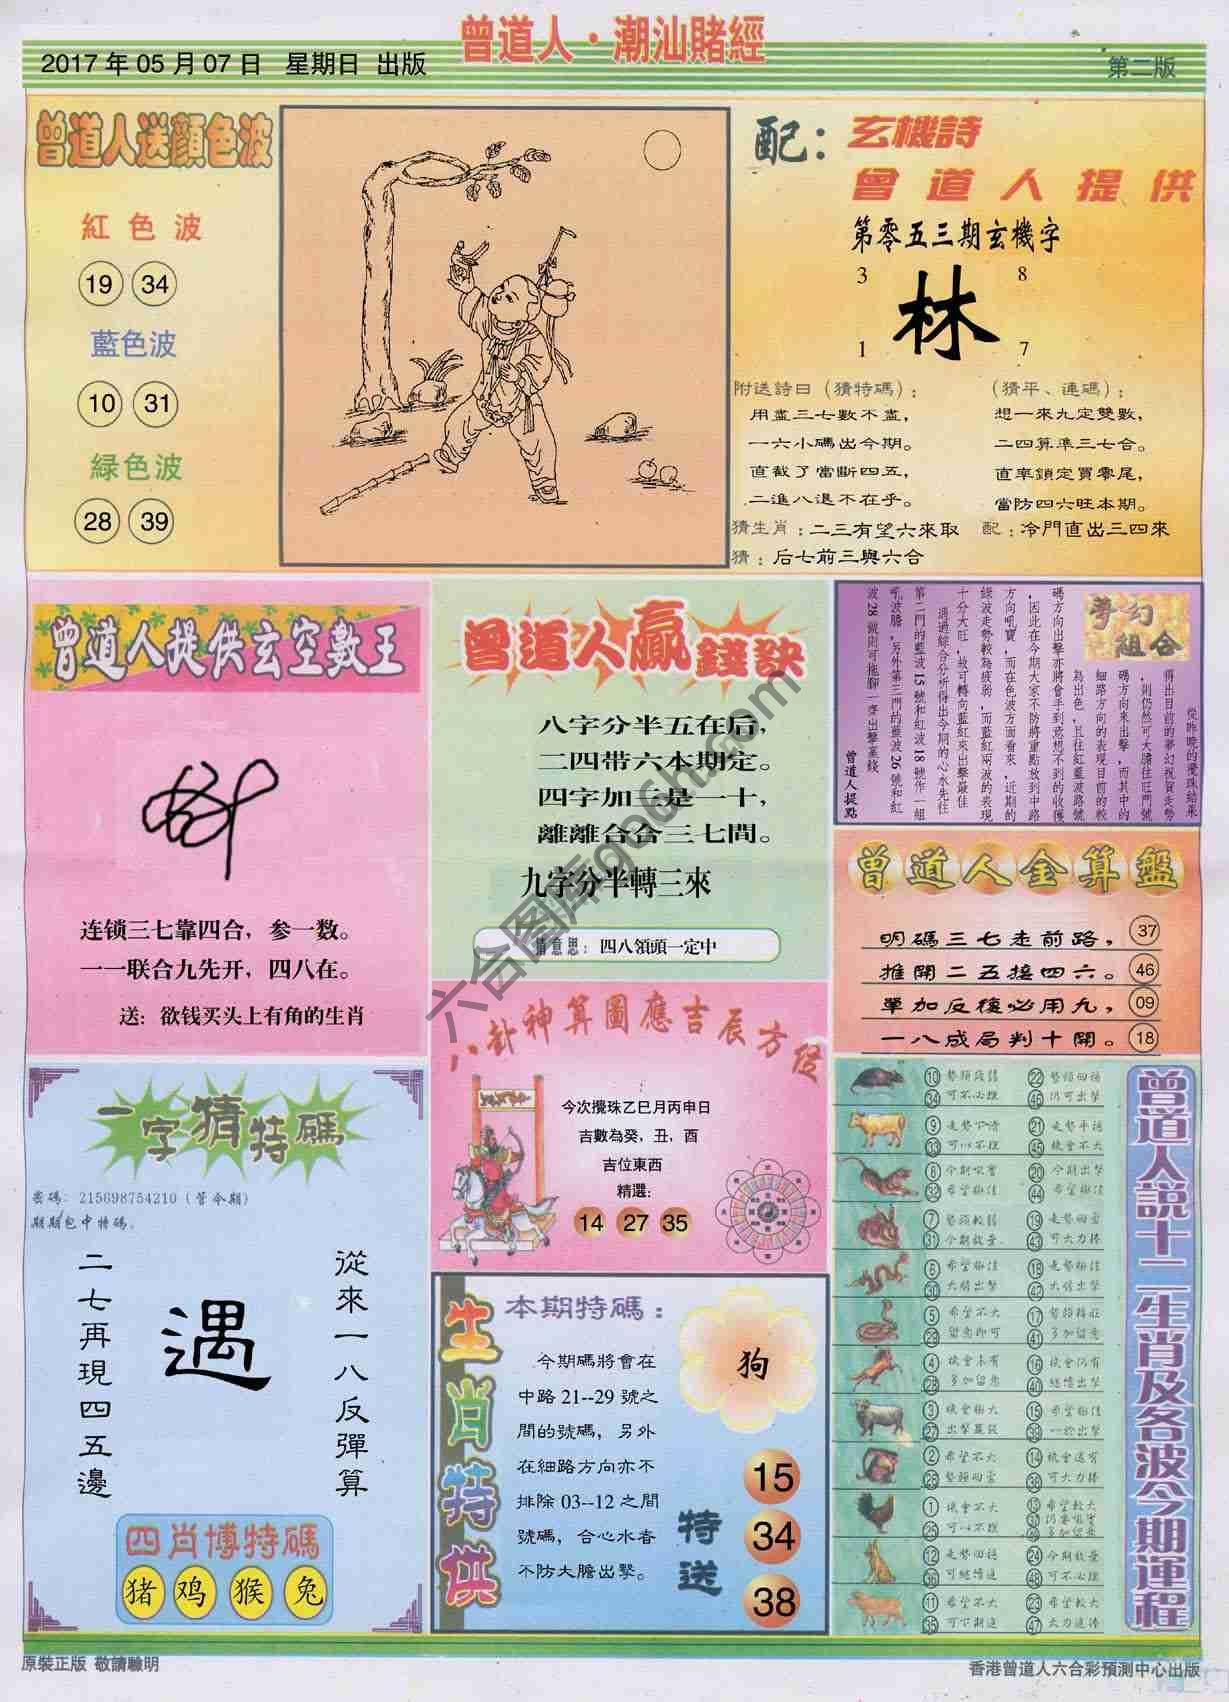 曾道人·潮汕賭經
2017年05月07日 星期日 出版
第二版
曾道人送顏色波
紅色波
19 34
藍色波
10 31
緑色波
28 39
配：
玄機詩
曾道人提供
第零五三期玄機字
3 8
林
1 7
附送詩曰（猜特碼）：
用盡三七數不盡，
一六小碼出今期。
直截了當斷四五，
二進八退不在乎。
（猜平、連碼）：
想一來九定雙數，
二四算準三七合。
直率鎖定買零尾，
當防四六旺本期。
猜生肖：二三有望六來取
配：冷門直出三四來
猜：后七前三與六合
曾道人提供玄空數王
连锁三七靠四合，参一数。
一一联合九先开，四八在。
送：欲钱买头上有角的生肖
曾道人贏錢訣
八字分半五在后，
二四带六本期定。
四字加三是一十，
離離合合三七間。
九字分半轉三來
猜意思：四八領頭一定中
夢幻組合
從昨晚的攪珠結果
得出目前的夢幻祝賀走勢
，則仍然可大膽往旺門號
碼方向來出擊，而其中的
細路方向的表現目前的較
為出色，且往紅藍波路號
碼方向出擊亦將會手到意想不到的收穫
，因此在今期大家不防將重點放到中路
方向吼寶，而在色波方面看來，近期的
綠波走勢較為疲弱，而藍紅兩波的表現
十分大旺，故可轉向藍紅來出擊最佳
通過綜合分析得出今期的心水先往
第二門的藍波15號和紅波18號作一組
吼波膽，另外第三門的藍波26號和紅
波28號則可拖腳一齊出擊贏錢
曾道人提點
曾道人金算盤
明碼三七走前路，37
推開二五接四六。46
單加反復必用九，09
一八成局判十開。18
八卦神算圖應吉辰方位
今次攪珠乙巳月丙申日
吉數為癸，丑，酉
吉位東西
精選：
14 27 35
一字猜特碼
密碼：215698754210（管令期）
期期包中特碼。
從來一八反彈算
遇
二七再現四五邊
四肖博特碼
猪 鸡 猴 兔
生肖特供
本期特碼：
今期碼將會在
中路21--29號之
間的號碼，另外
在細路方向亦不
排除03--12之間
號碼，合心水者
不防大膽出擊。
狗
特送
15
34
38
曾道人説十二生肖及各波今期運程
10 勢頭疲弱 22 勢頭回穩
34 可不必理 46 仍可出擊
9 走勢下滑 21 走勢平穩
33 可以不理 45 機會不大
8 今期吼實 20 今期出擊
32 希望極佳 44 希望極佳
7 勢頭較弱 19 走勢回靈
31 今期放棄 43 可大力捧
6 希望極佳 18 走勢極佳
30 大膽出擊 42 大膽出擊
5 希望不大 17 勢頭轉旺
29 留意即可 41 多加留意
4 機會未有 16 機會仍有
28 多加留意 40 繼續出擊
3 機會極大 15 希望極佳
27 出擊贏錢 39 一於出擊
2 希望不大 14 機會還有
26 勢頭回靈 38 可大力捧
1 機會不大 13 希望較大
25 可以不理 37 仍要吼實
49 多加留意
12 走勢回穩 24 今期放棄
36 可繼續追 48 可不必理
11 希望不大 23 希望較大
35 可下期追 47 大力追捧
原裝正版 敬請驗明
香港曾道人六合彩預測中心出版
六合图库gg6h.com